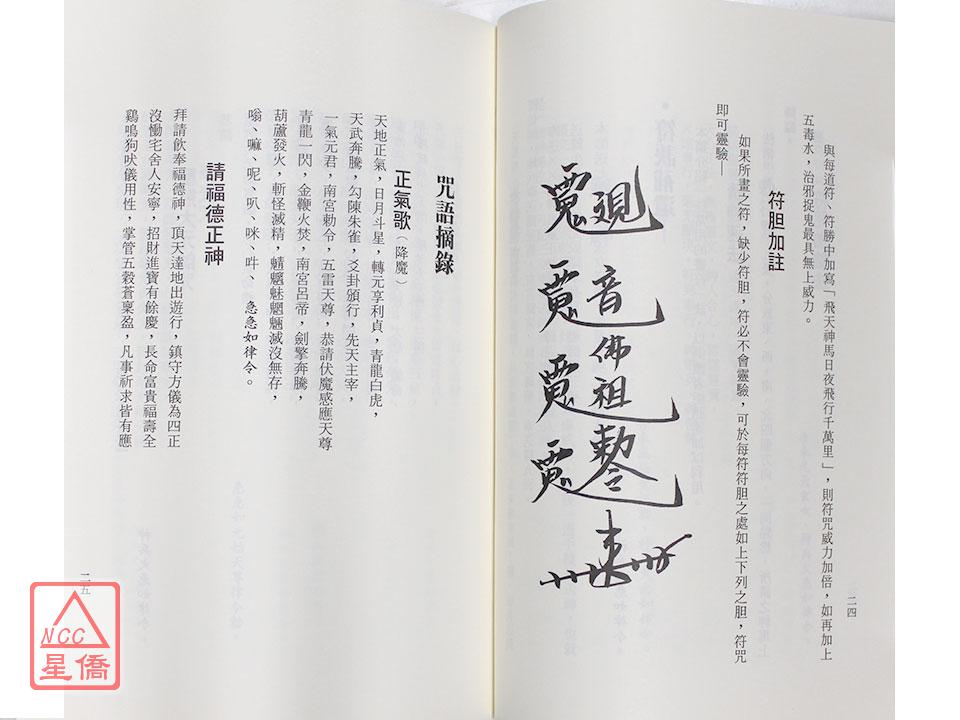 與每道符、符勝中加寫「飛天神馬日夜飛行千萬里」，則符咒威力加倍，如再加上
五毒水，治邪捉鬼最具無上威力。
符胆加註
如果所畫之符，缺少符胆，符必不會靈驗，可於每符符胆之處如上下列之胆，符咒
即可靈驗—
音
佛
祖
勅令
二四
咒語摘錄
正氣歌（降魔）
天地正氣，日月斗星，轉元享利貞，青龍白虎，
天武奔騰，勾陳朱雀，爻卦頒行，先天主宰，
一氣元君，南宮勅令，五雷天尊，恭請伏魔感應天尊
青龍一閃，金鞭火焚，南宮呂帝，劍擎奔騰，
葫蘆發火，斬怪滅精，魑魅魍魎滅沒無存，
嗡、嘛、呢、叭、咪、吽、急急如律令。
請福德正神
拜請飲奉福德神，頂天達地出遊行，鎮守方儀為四正
沒慟宅舍人安寧，招財進寶有餘慶，長命富貴福壽全
鷄鳴狗吠儀用性，掌管五穀蒼稟盈，凡事祈求皆有應
二五
NCC
星僑